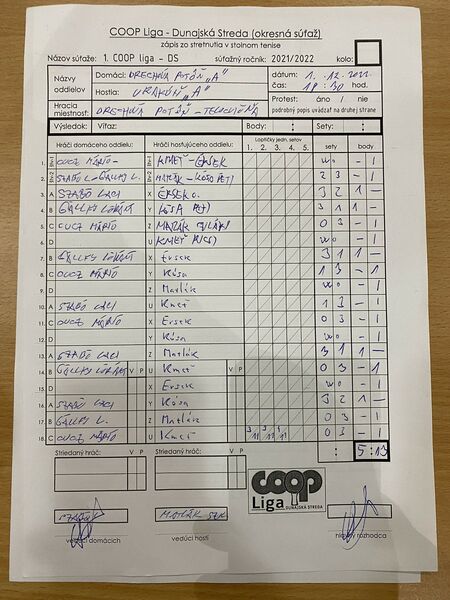 COOP Liga - Dunajská Streda (okresná súťaž)
zápis zo stretnutia v stolnom tenise
Názov súťaže: 1. COOP liga - DS súťažný ročník: 2021/2022 kolo:
Názvy oddielov Domáci: ORECHNÁ POTÔŇ „A“ dátum: 1. 12. 2022
Hostia: VRAKÚŇ „A“ čas: 18:30 hod.
Hracia miestnosť: ORECHNÁ POTÔŇ - TELOCVIČŇA Protest: áno / nie
podrobný popis uvádzať na druhej strane
Výsledok: Víťaz: Body: : Sety: :
Hráči domáceho oddielu: Hráči hosťujúceho oddielu: Loptičky jedn. setov sety body
1. 2. 3. 4. 5.
1. CUCZ MÁRIÓ - KMEŤ - ERSEK WO - 1
2. SZABÓ L. - GÁLLFFY L. MATLÁK - KÓSA PETI 2 3 - 1
3. A SZABÓ LACI X ERSEK O. 3 2 1 -
4. B GÁLLFFY LÓRÁNT Y KÓSA PETI 3 1 1 -
5. C CUCZ MÁRIÓ Z MATLÁK 0 3 - 1
6. D U KMEŤ WO - 1
7. B GÁLLFFY LÓRÁNT X Ersek 3 1 1 -
8. C CUCZ MÁRIÓ Y Kósa 1 3 - 1
9. D Z Matlák WO - 1
10. A SZABÓ LACI U Kmeť 1 3 - 1
11. C CUCZ MÁRIÓ X Ersek 0 3 - 1
12. D Y Kósa WO - 1
13. A SZABÓ LACI Z Matlák 3 1 1 -
V P V P
14. B GÁLLFFY LÓRÁNT U Kmeť 0 3 - 1
15. D X Ersek WO - 1
16. A SZABÓ LACI Y Kósa 3 2 1 -
17. B GÁLLFFY L. Z Matlák 0 3 - 1
18. C CUCZ MÁRIÓ U Kmeť 3 11 3 11 1 11 0 3 - 1
: 5:13
Striedaný hráč: V P Striedaný hráč: V P
coop Liga DUNAJSKÁ STREDA
SZABÓ MATLÁK
vedúci domácich vedúci hostí hlavný rozhodca